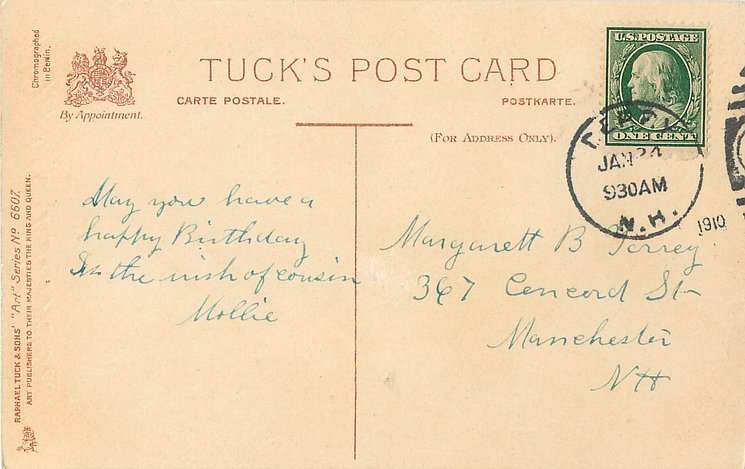 Chromographed
in Berlin.
By Appointment.
TUCK'S POST CARD
CARTE POSTALE.
POSTKARTE.
(FOR ADDRESS ONLY).
U.S. POSTAGE
ONE CENT
JAN 24
930AM
N.H.
1910
May you have a
happy Birthday
Is the wish of cousin
Mollie
Margarett B
367 Concord St
Manchester
NH
RAPHAEL TUCK & SONS' "Art" Series No 6607.
ART PUBLISHERS TO THEIR MAJESTIES THE KING AND QUEEN.